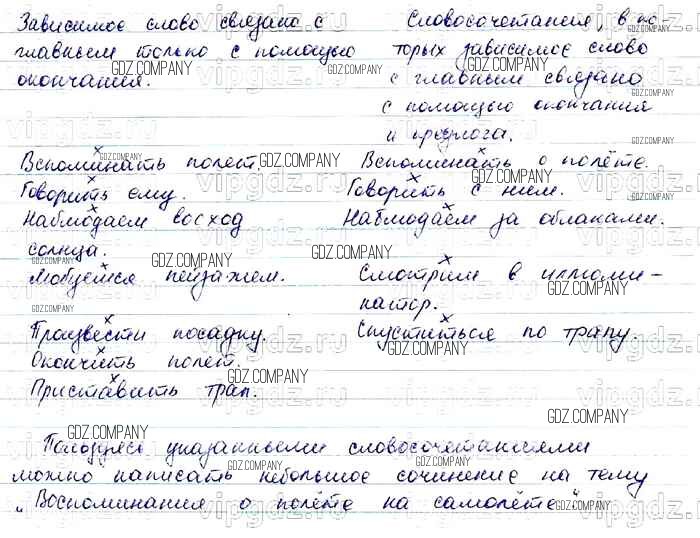 Зависимое слово связано с
главным только с помощью
окончания.
Словосочетания, в ко-
торых зависимое слово
с главным связано
с помощью окончания
и предлога.
Вспоминать полет.
Говорить ему.
Наблюдаем восход
солнца.
Любуемся пейзажем.
Произвести посадку.
Окончить полет.
Приставить трап.
Вспоминать о полёте.
Говорить с ним.
Наблюдаем за облаками.
Смотрим в иллюми-
натор.
Спуститься по трапу.
Пользуясь указанными словосочетаниями
можно написать небольшое сочинение на тему
„Воспоминания о полёте на самолёте“
GDZ.COMPANY
vipgdz.ru